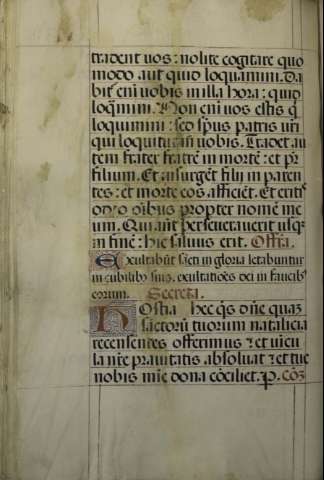 tradent uos: nolite cogitare quo
modo aut quid loquamini. Da
bit͛ em̄ uobis in illa hora: quid
loq̄mini. Non em̄ uos estis q̇
loquimini: sed sp̄us patris ur̄i
qui loquit᷑ in uobis. Tradet au
tem frater fratrē in mortē: et pr̄
filium. Et insurgēt filij in paren
tes: et morte eos afficiēt. Et eritis
odio oībus propter nomē me
um. Qui aūt perseuerauerit usq;
in finē: hic saluus erit. Offr̄a.
Exultabūt sc̄i in gloria letabuntur
in cubilib; suis. exultatiōes dei in faucib;
eorum. Secreta.
Hostia hec q̄s dn̄e quaȝ
sāctorū tuorum natalicia
recensentes offerimus et uicu
la nr̄e prauitatis absoluat et tue
nobis mīe dona cōciliet. p. Cōȝ